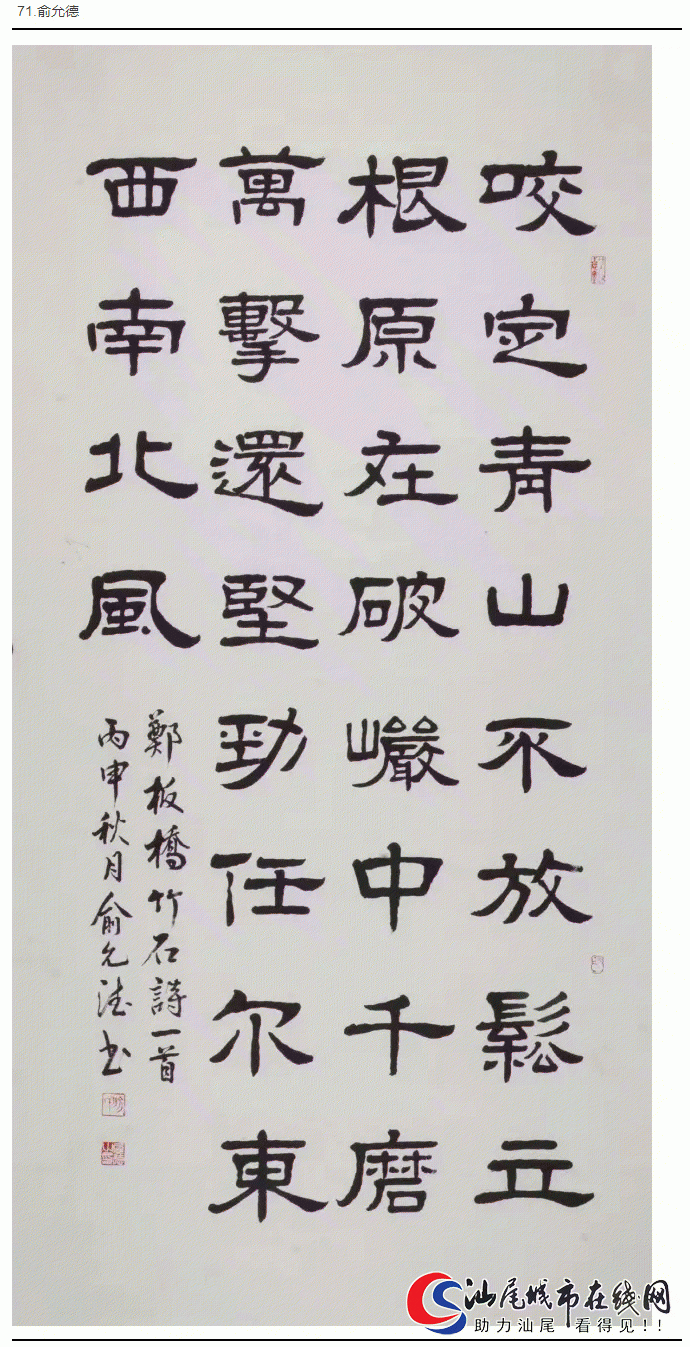 71.俞允德
咬定青山不放鬆立
根原在破巖中千磨
萬擊還堅勁任尔東
西南北風
鄭板橋竹石詩一首
丙申秋月俞允德书
汕尾城市在线网
助力汕尾·看得见!!